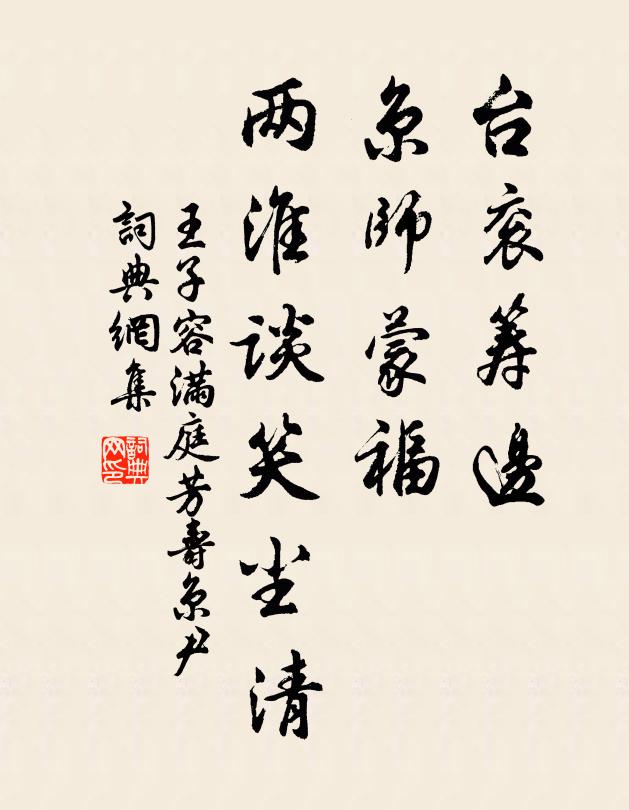 台衮筹邊
京師蒙福
两淮談笑尘清
王子容滿庭芳壽京尹
詞典網集
詞典
网印